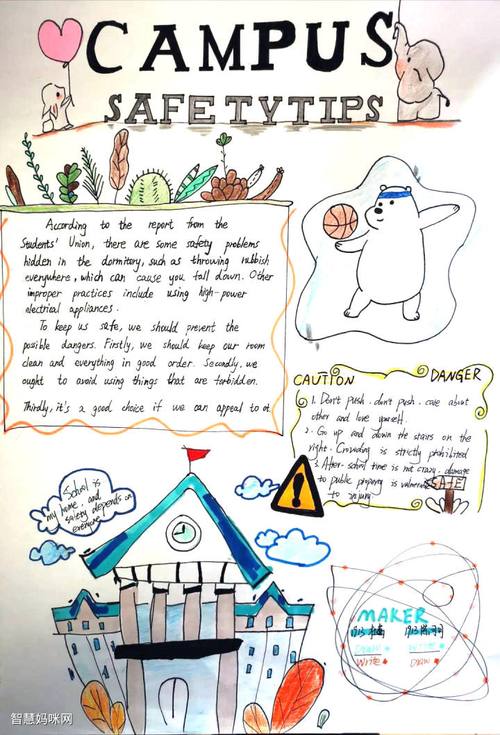 CAMPUS
SAFETY TIPS
According to the report from the
Students' Union, there are some safety problems
hidden in the dormitory, such as throwing rubbish
everywhere, which can cause you fall down. Other
improper practices include using high-power
electrical appliances.
To keep us safe, we should prevent the
possible dangers. Firstly, we should keep our room
clean and everything in good order. Secondly, we
ought to avoid using things that are forbidden.
Thirdly, it's a good choice if we can appeal to ot
CAUTION DANGER
1. Don't push. don't push. care about
other and love yourself.
2. Go up and down the stairs on the
right. Crowding is strictly prohibited
3. After-school time is not crazy. damage
to public property is vulnerable
to injury
SAFE
School is
my home, and
safety depends on
everyone
MAKER
DRAW WRITE
WRITE DRAW
智慧妈咪网